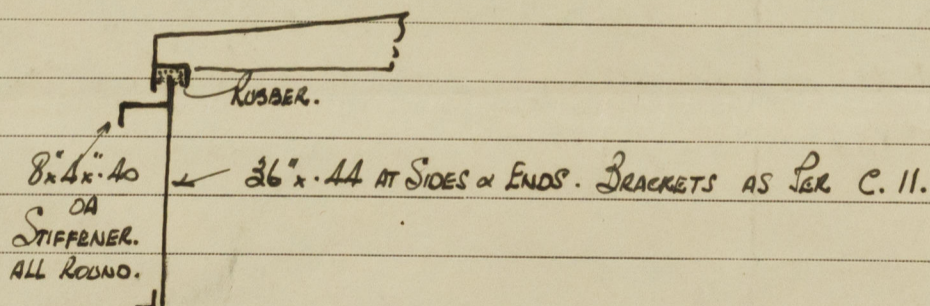 RUBBER.
8"x4"x.40
OA
STIFFENER.
ALL ROUND.
36"x.44 AT SIDES & ENDS. BRACKETS AS PER C. 11.